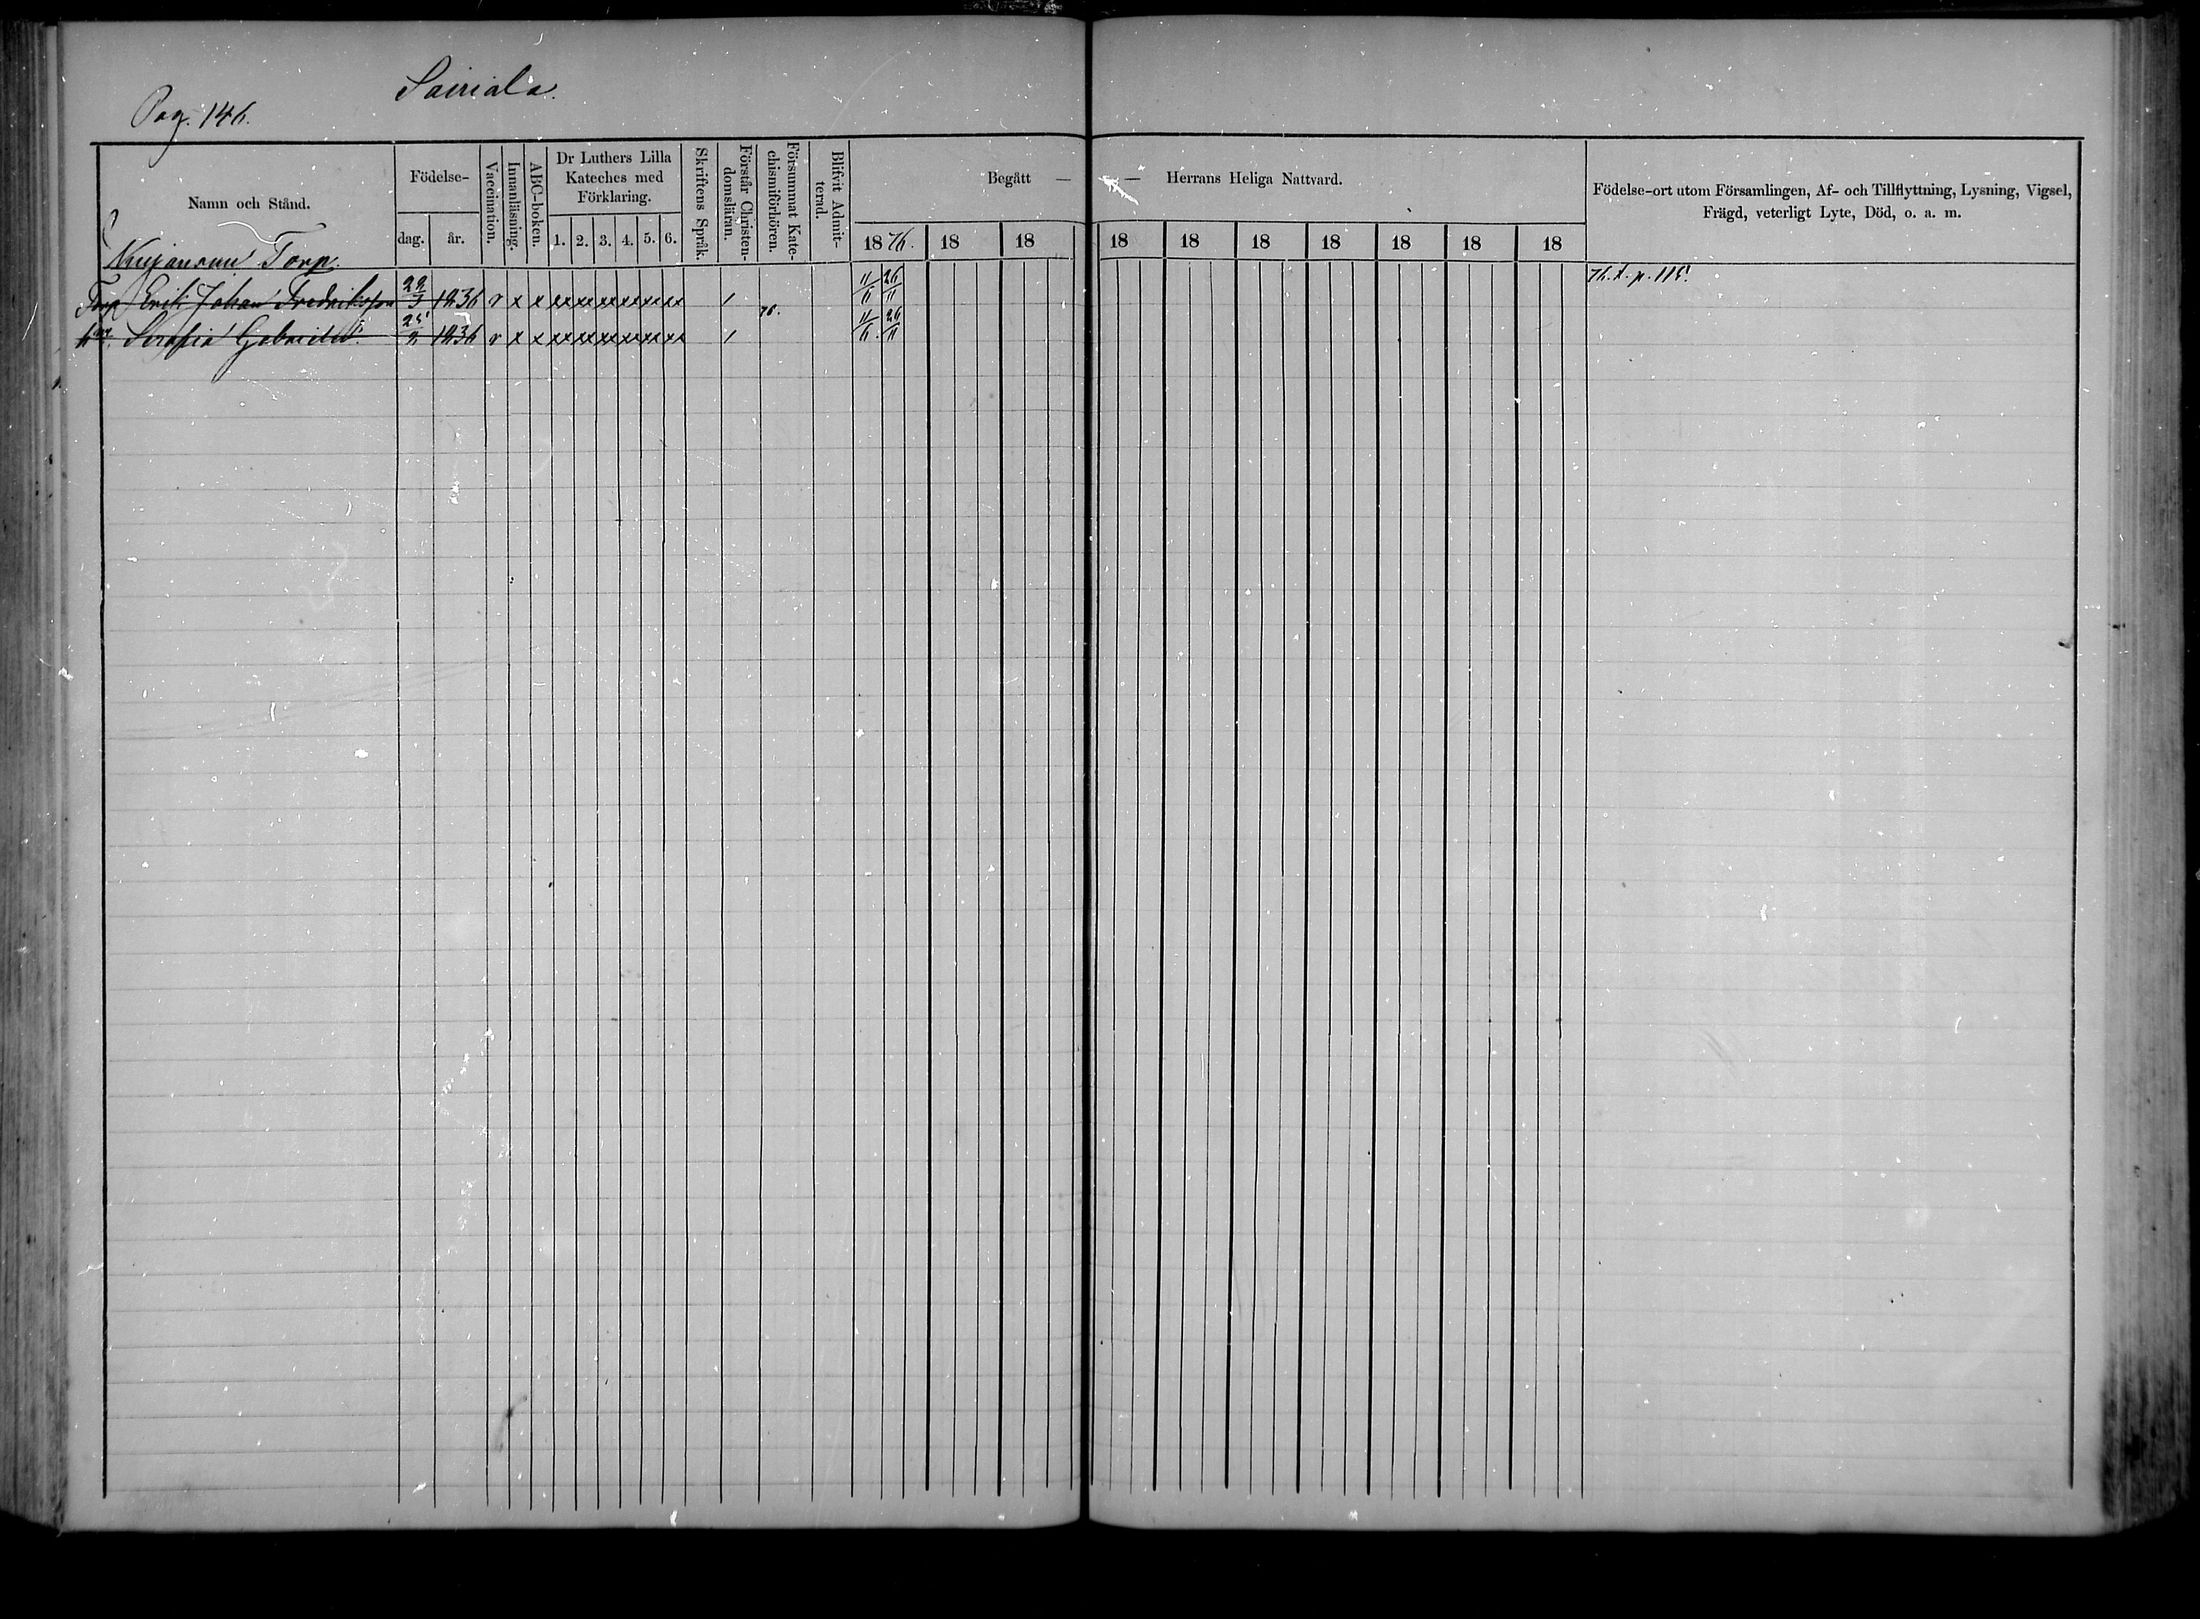 Sairiala.
Pag. 146.
Namn och Stånd.
Födelse-
dag. år.
Vaccination.
Innanläsning.
ABC-boken.
Dr Luthers Lilla
Kateches med
Förklaring.
1. 2. 3. 4. 5. 6.
Skriftens Språk.
Förstår Christen-
domsläran.
Försummat Kate-
chismiförhören.
Blifvit Admit-
terad.
Begått — — Herrans Heliga Nattvard.
1876. 18 18 18 18 18 18 18 18 18
Födelse-ort utom Församlingen, Af- och Tillflyttning, Lysning, Vigsel,
Frägd, veterligt Lyte, Död, o. a. m.
Kujansuu Torp.
Torp Erik Johan Fredriksson 1836 v x x 11/6 26/11 76. t. p. 115.
76.
Hu. Serafia Gabrielsd. 25/2 1836 v x x 11/6 26/11